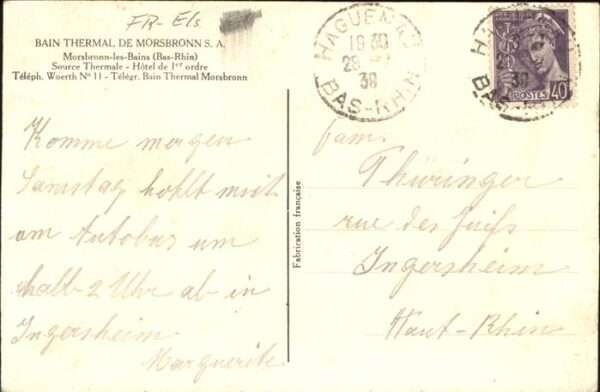 FR-Els
BAIN THERMAL DE MORSBRONN S. A.
Morsbronn-les-Bains (Bas-Rhin)
Source Thermale - Hôtel de 1er ordre
Téléph. Woerth No 11 - Télégr. Bain Thermal Morsbronn
Komme morgen
Samstag, hohlt mich
am Autobus um
halb-2 Uhr ab in
Ingersheim
Marguerite
Fabrication française
HAGUENAU
19 30
28
38
BAS-RHIN
POSTES 40
HA
2
38
BAS-
fam.
Thüringer
rue des Juifs
Ingersheim
Haut-Rhin